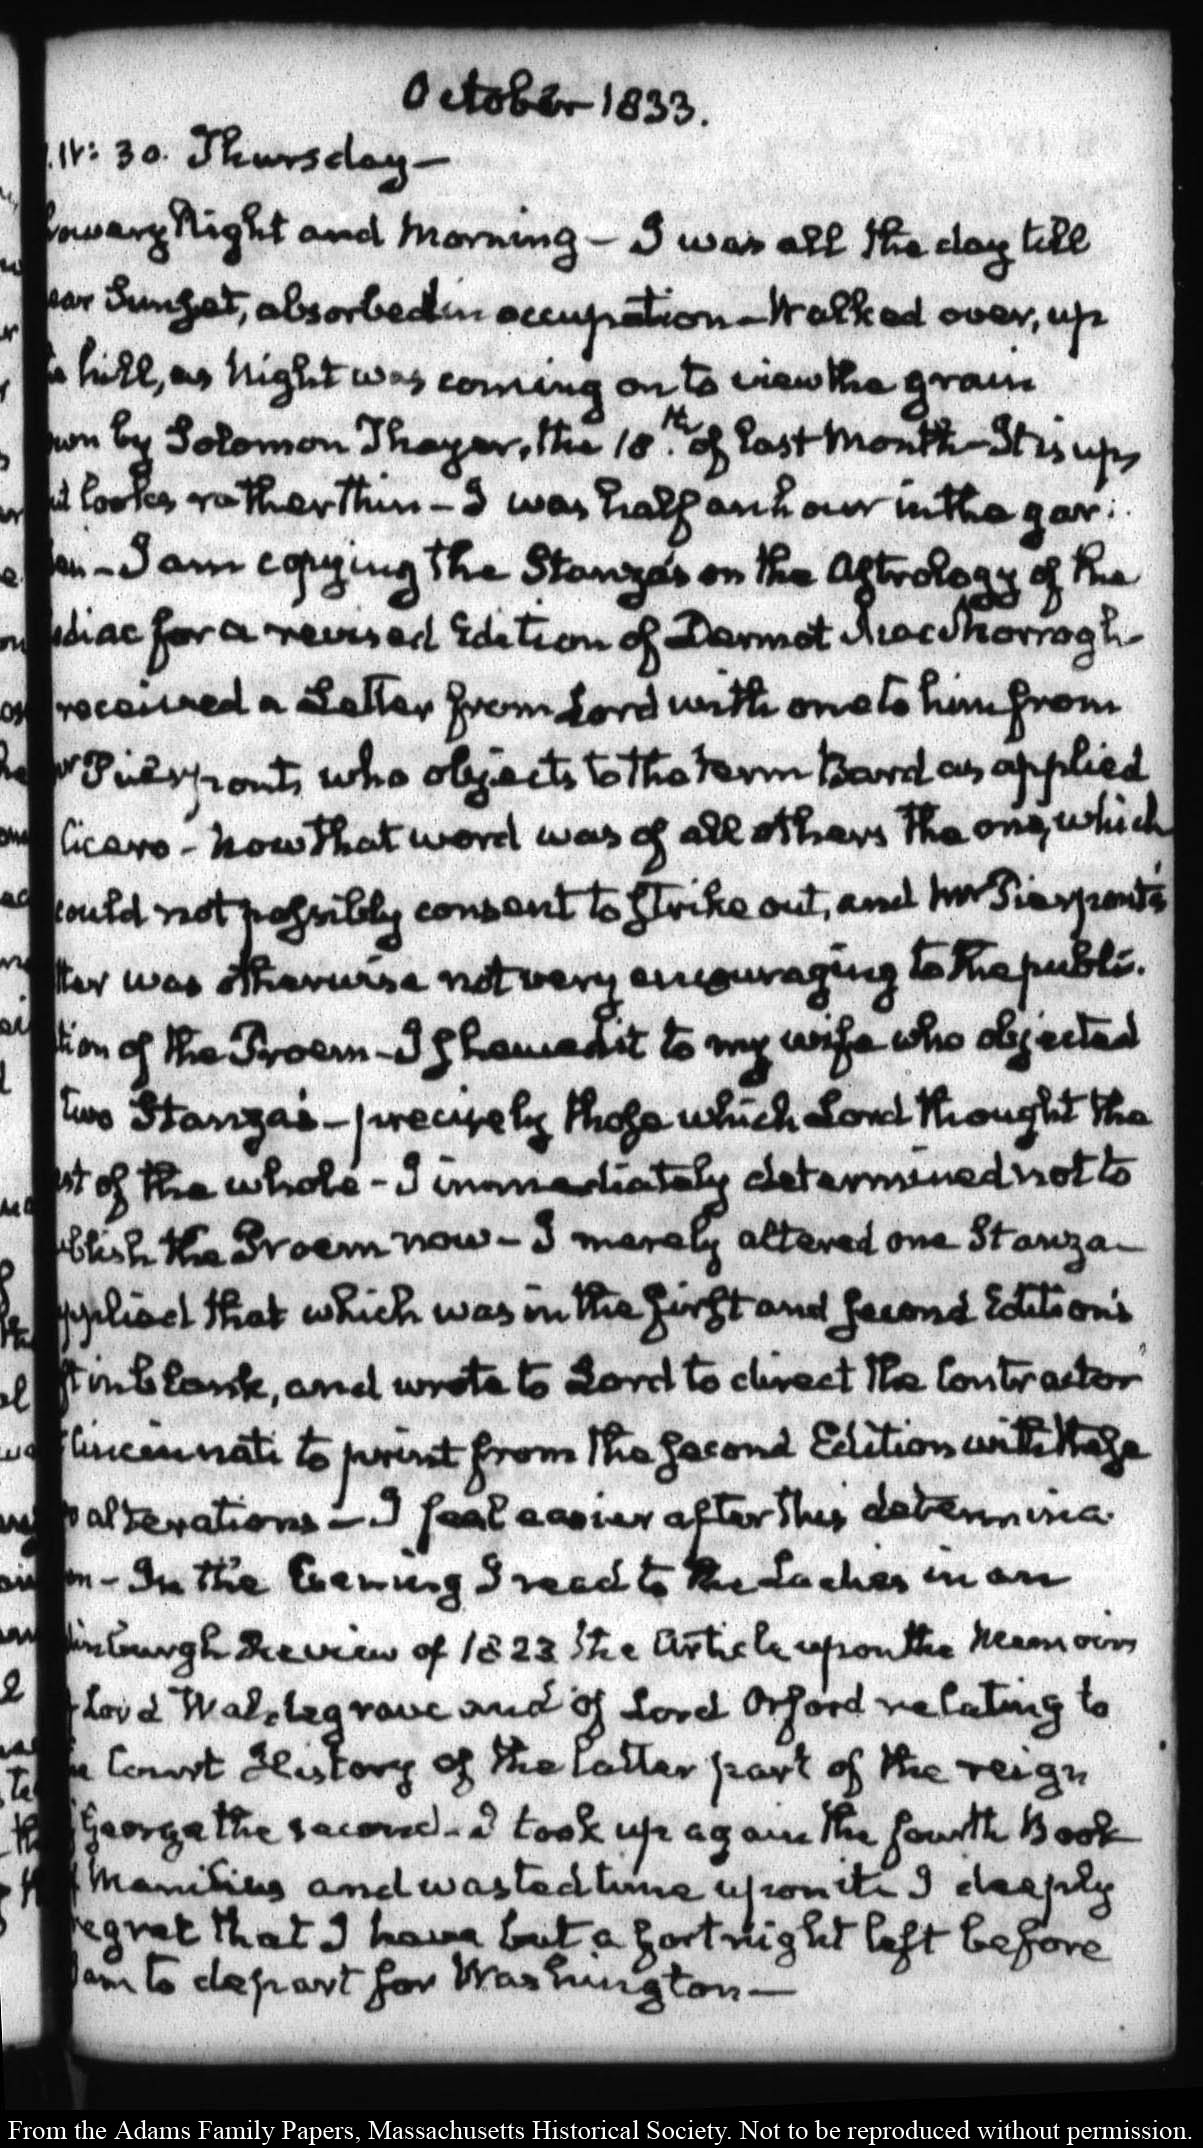 October 1833.
IV: 30. Thursday—
Night and Morning – I was all the day till
Sunset, absorbed in occupation – Walked over, up
hill, as Night was coming on to view the grain
by Solomon Thayer, the 18th. of last Month – It is up,
looks rather thin – I was half an hour in the gar:
– I am copying the Stanza's on the Astrology of the
for a revised Edition of Dermot MacMorrogh –
received a Letter from Lord with one to him from
Pierpont, who objects to the term Bard as applied
Cicero – Now that word was of all others the one, which
could not possibly consent to strike out, and Mr Pierpont's
was otherwise not very encouraging to the publi.
of the Proem – I shewed it to my wife who objected
two Stanza's – precisely those which Lord thought the
of the whole – I immediately determined not to
the Proem now – I merely altered one Stanza –
that which was in the first and second Edition's
in blank, and wrote to Lord to direct the Contractor
Cincinnati to print from the second Edition with these
alterations – I feel easier after this determina.
– In the Evening I read to the Ladies in an
Review of 1823 the Article upon the Memoirs
Lord Waldegrave and of Lord Orford relating to
Court History of the latter part of the reign
George the second – I took up again the fourth Book
Manilius and wasted time upon it. I deeply
regret that I have but a fortnight left before
I am to depart for Washington—
From the Adams Family Papers, Massachusetts Historical Society. Not to be reproduced without permission.